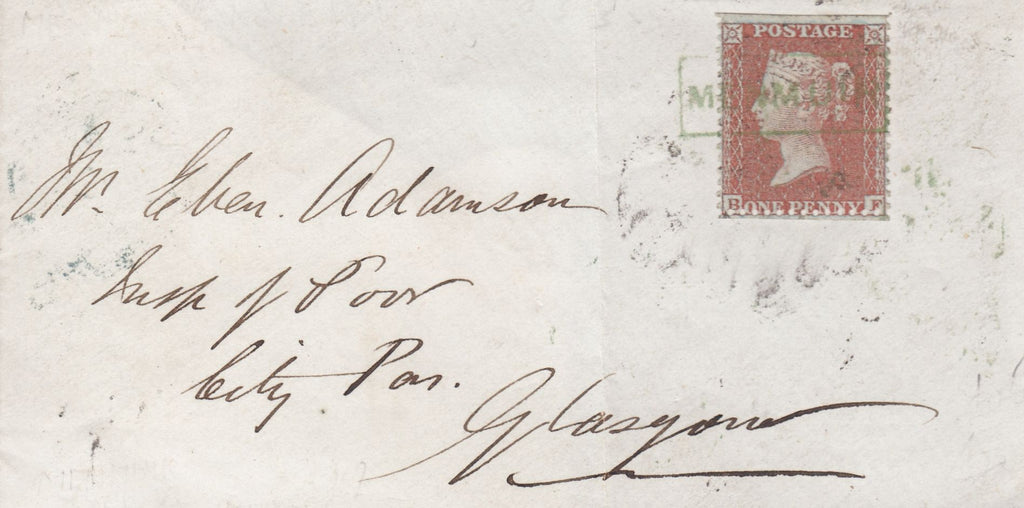 POSTAGE
B ONE PENNY F
Mr. Eben. Adamson
Insp of Poor
City Par.
Glasgow